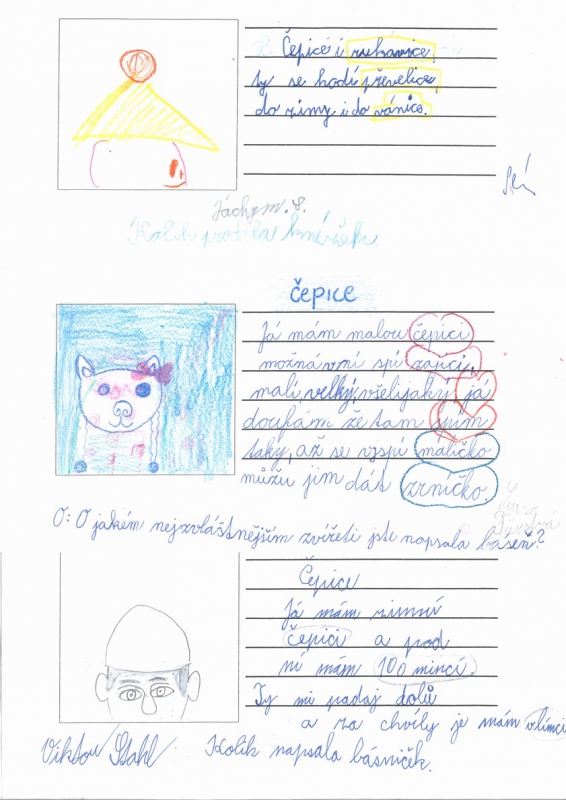 Čepice i rukavice,
ty se hodí převelice,
do zimy i do vánice.
Jáchym. Š.
Kolik
čepice
Já mám malou čepici
možná v ní spí zajíci,
malí, velký, všelijaký já
doufám že tam spím
taky, až se vyspí maličko
můžu jim dát zrníčko.
O: O jakém nejzvláštnějším zvířeti jste napsala báseň?
Čepice
Já mám zimní
čepici a pod
ní mám 100 mincí.
Ty mi padaj dolů
a za chvíly je mám v límci
Viktor Stahl Kolik napsala básniček.